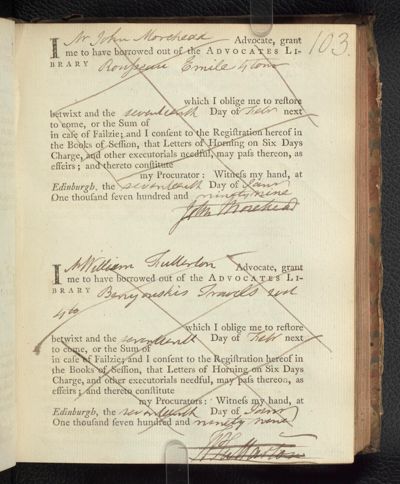 103.
I Mr John Morehead Advocate, grant
me to have borrowed out of the ADVOCATES LI-
BRARY Rousseau Emile 4 tom
which I oblige me to reſtore
betwixt and the seventeenth Day of Febr next
to come, or the Sum of
in caſe of Failzie; and I conſent to the Regiſtration hereof in
the Books of Seſſion, that Letters of Horning on Six Days
Charge, and other executorials needful, may paſs thereon, as
effeirs; and thereto conſtitute
my Procurator: Witneſs my hand, at
Edinburgh, the seventeenth Day of Janry
One thouſand ſeven hundred and ninety nine
John Morehead
I Mr William Fullerton Advocate, grant
me to have borrowed out of the ADVOCATES LI-
BRARY Benyowskis Travels 2 vol
4to
which I oblige me to reſtore
betwixt and the seventeenth Day of Febr next
to come, or the Sum of
in caſe of Failzie; and I conſent to the Regiſtration hereof in
the Books of Seſſion, that Letters of Horning on Six Days
Charge, and other executorials needful, may paſs thereon, as
effeirs; and thereto conſtitute
my Procurator: Witneſs my hand, at
Edinburgh, the seventeenth Day of Janry
One thouſand ſeven hundred and ninety nine